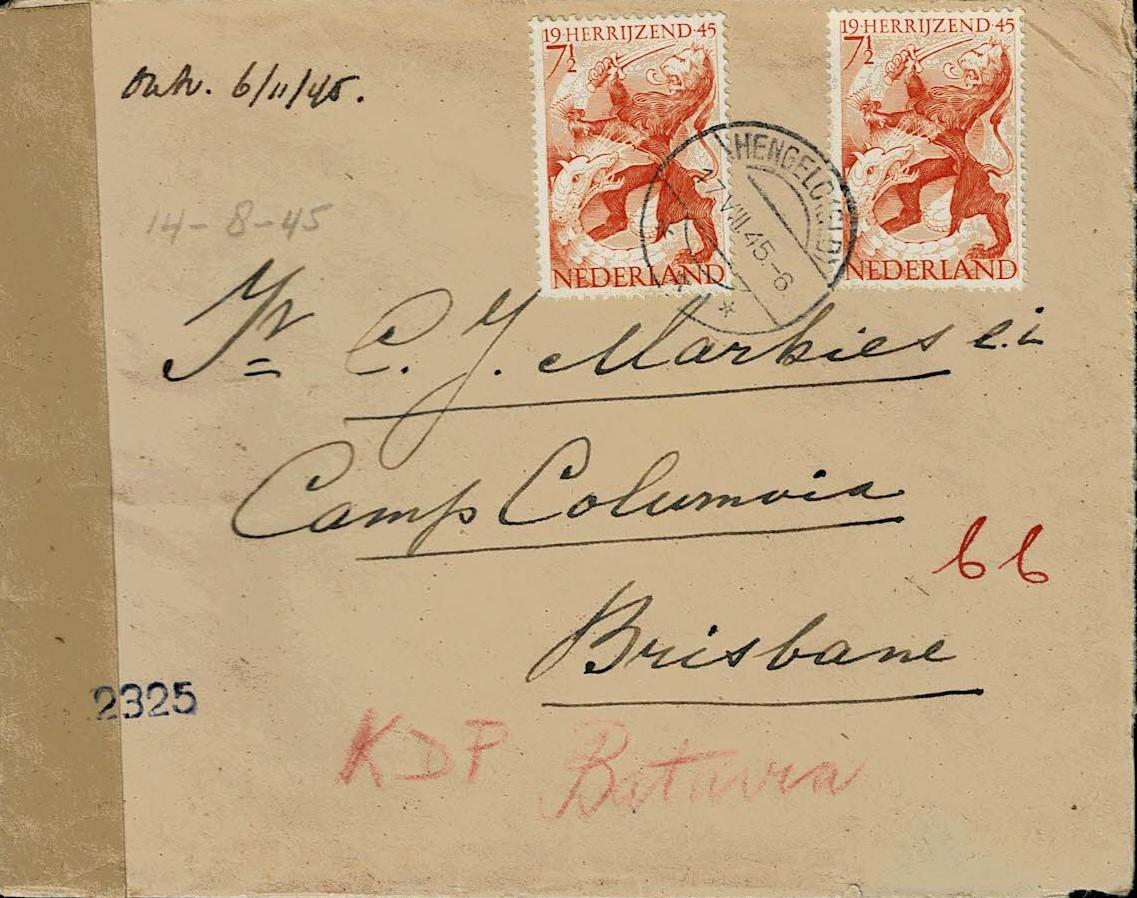 19·HERRIJZEND·45
7½
NEDERLAND
19·HERRIJZEND·45
7½
NEDERLAND
HENGELO (GLD)
17.VIII.45.-8
6/11/45.
14-8-45
Ir C. J. Markies e.i.
Camp Columvia
66
Brisbane
2325
KDP Batavia